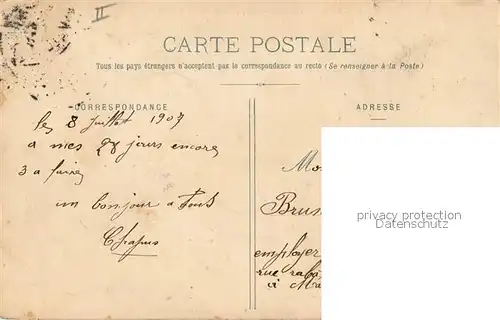 II
CARTE POSTALE
Tous les pays étrangers n'acceptent pas la correspondance au recto (Se renseigner à la Poste)
CORRESPONDANCE
ADRESSE
les 8 Juillet 1907
a mes 28 jours encore
3 a faire
un bonjour a tous
Chapus
Mo
Brus
employer
rue raba
à Ma
privacy protection
Datenschutz